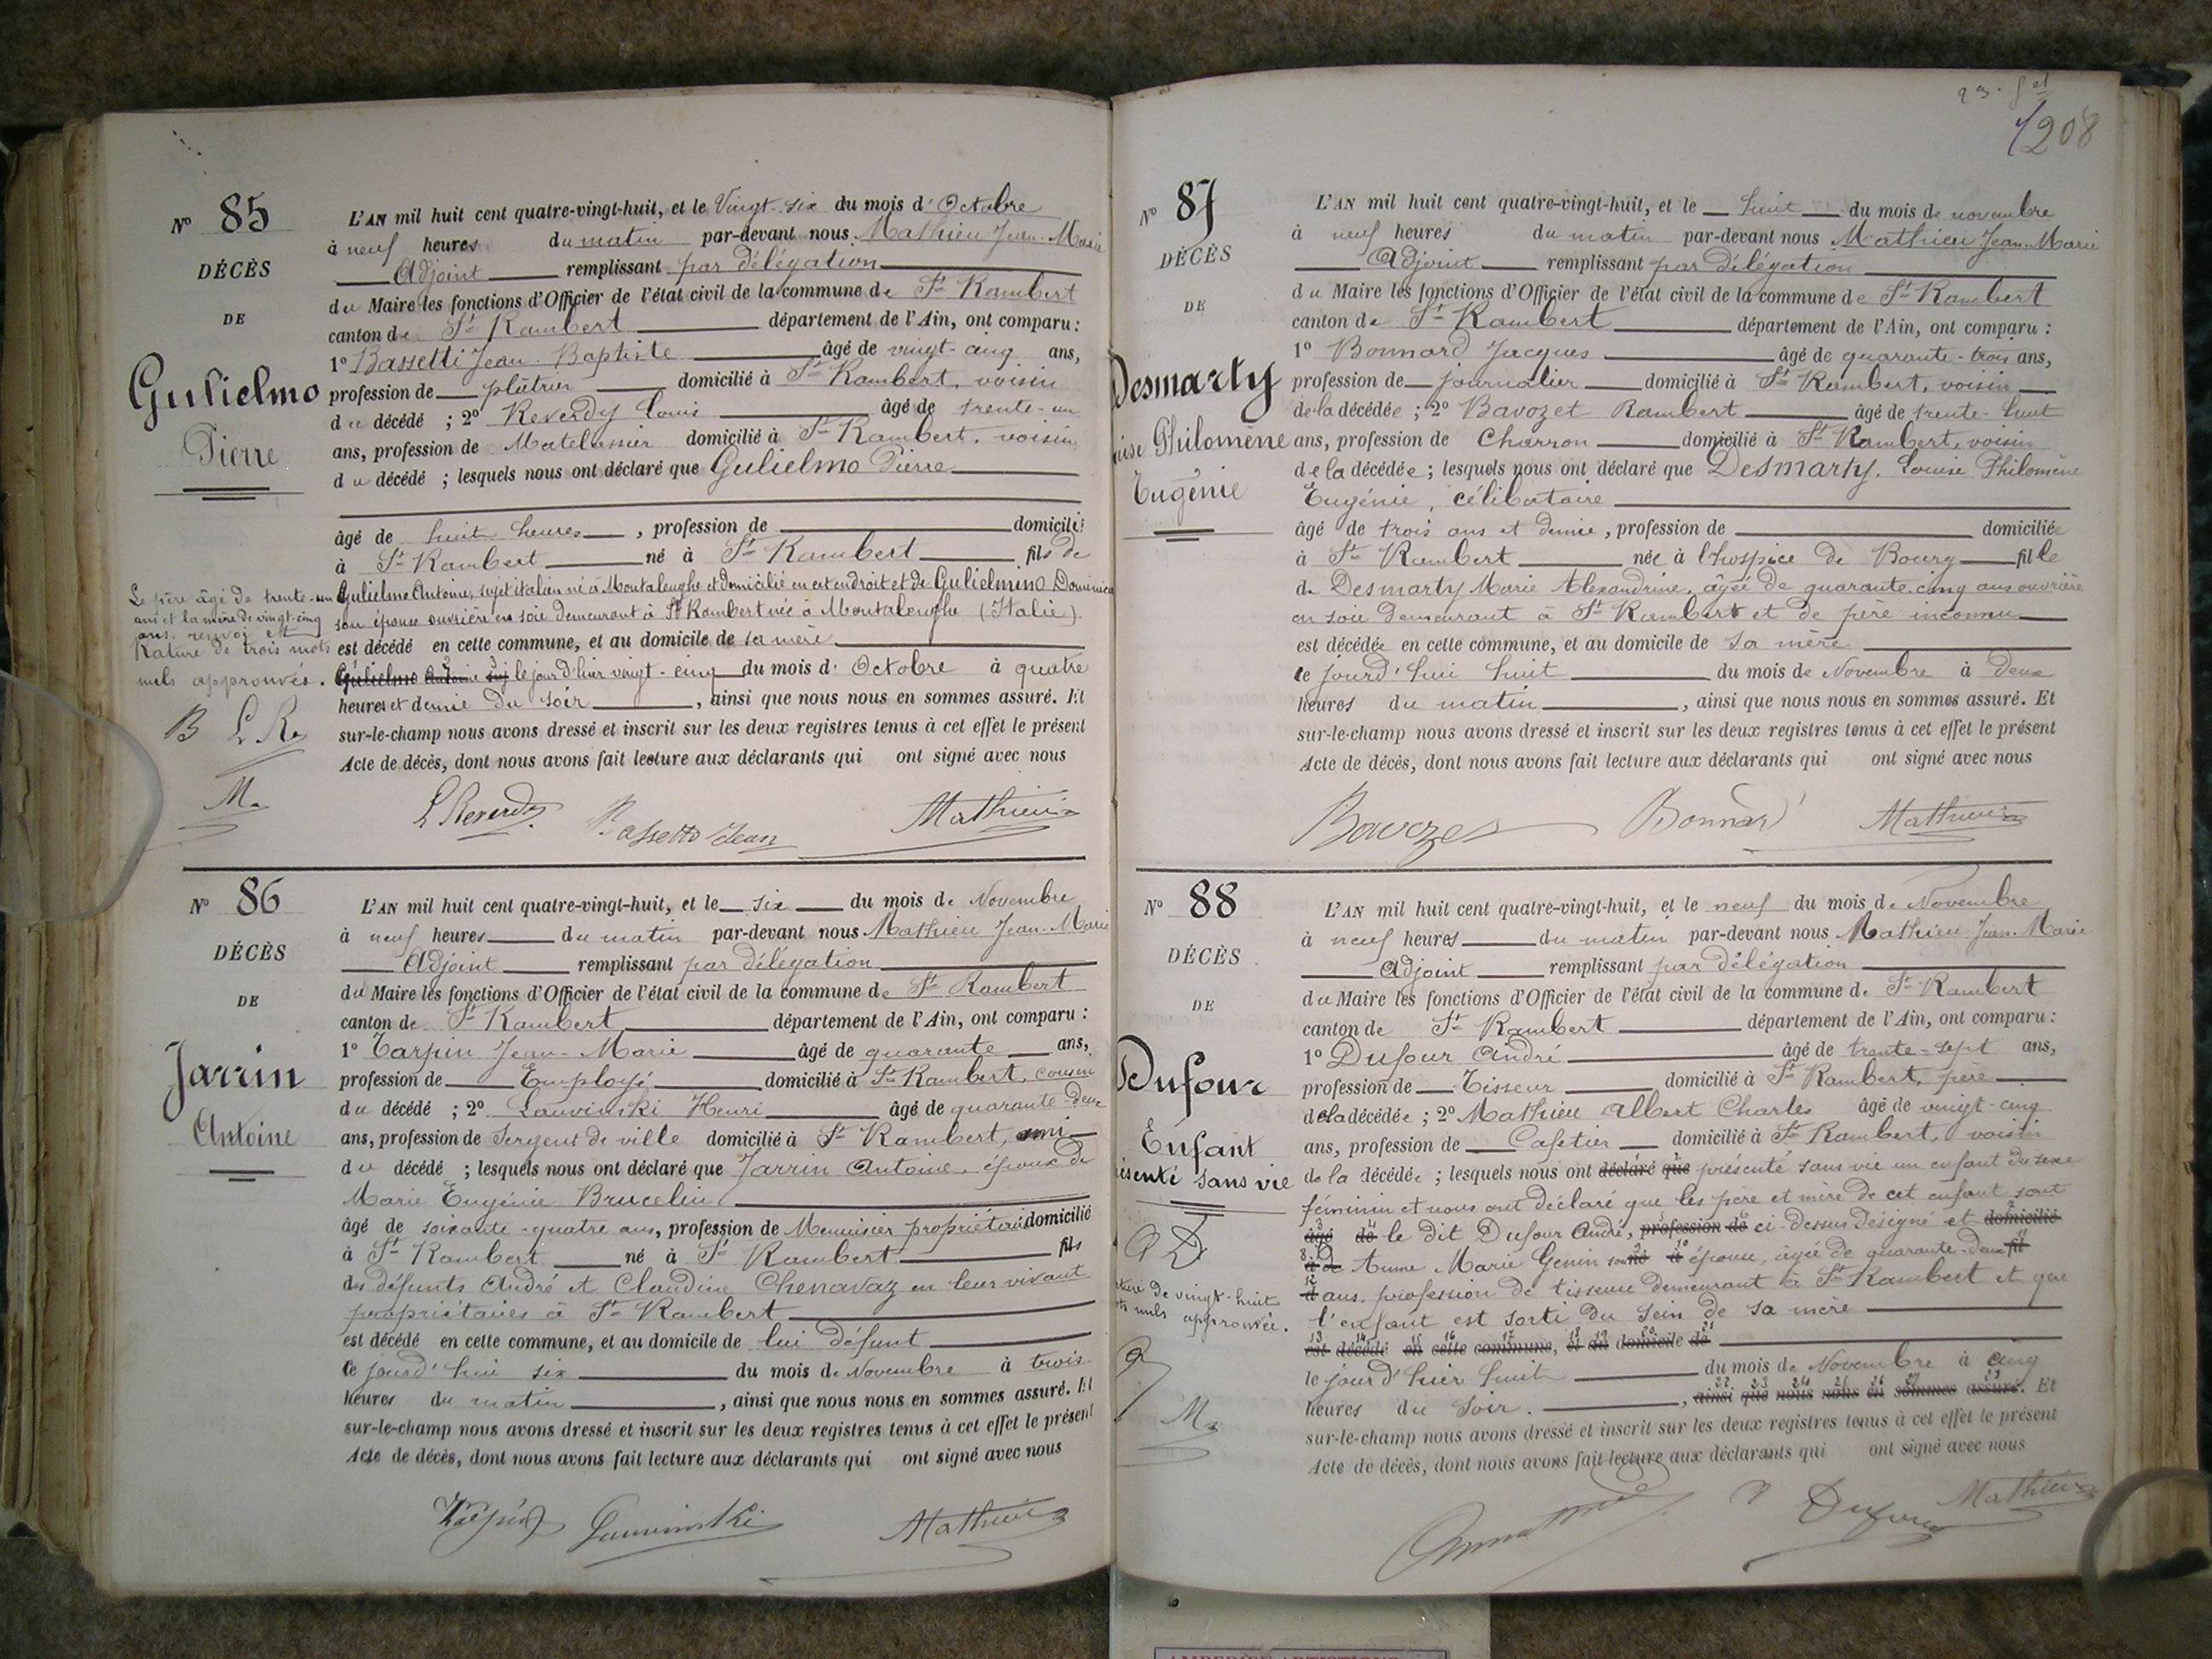 Nº 85
DÉCÈS
DE
Gulielmo
Pierre
L'AN mil huit cent quatre-vingt-huit, et le Vingt-six du mois d'Octobre
à neuf heures du matin par-devant nous Mathieu Jean-Marie
Adjoint remplissant par délégation
du Maire les fonctions d'Officier de l'état civil de la commune de St Rambert
canton de St Rambert département de l'Ain, ont comparu :
1º Bassetti Jean-Baptiste âgé de vingt-cinq ans,
profession de plâtrier domicilié à St Rambert, voisin
du décédé ; 2º Reverdy Louis âgé de trente-un
ans, profession de Matelassier domicilié à St Rambert, voisin
du décédé ; lesquels nous ont déclaré que Gulielmo Pierre
âgé de huit heures, profession de domicilié
à St Rambert né à St Rambert fils de
Gulielmo Antoine, sujet italien né à Montalenghe et domicilié en cet endroit et de Gulielmino Dominica
son épouse ouvrière en soie demeurant à St Rambert née à Montalenghe (Italie)
est décédé en cette commune, et au domicile de sa mère
Gulielmo Antoine suj le jour d'hier vingt-cinq du mois d'Octobre à quatre
heures et demie du soir, ainsi que nous nous en sommes assuré. Et
sur-le-champ nous avons dressé et inscrit sur les deux registres tenus à cet effet le présent
Acte de décès, dont nous avons fait lecture aux déclarants qui ont signé avec nous
Le père âgé de trente-un
ans et la mère de vingt-cinq
ans. renvoi et
Rature de trois mots
nuls approuvés.
B L R
M
L Reverdy Bassetti Jean Mathieu
Nº 86
DÉCÈS
DE
Jarrin
Antoine
L'AN mil huit cent quatre-vingt-huit, et le six du mois de Novembre
à neuf heures du matin par-devant nous Mathieu Jean-Marie
Adjoint remplissant par délégation
du Maire les fonctions d'Officier de l'état civil de la commune de St Rambert
canton de St Rambert département de l'Ain, ont comparu :
1º Tarpin Jean-Marie âgé de quarante ans,
profession de Employé domicilié à St Rambert, cousin
du décédé ; 2º Henri âgé de quarante-deux
ans, profession de Sergent de ville domicilié à St Rambert, ami
du décédé ; lesquels nous ont déclaré que Jarrin Antoine, époux de
Marie Eugénie Brucelin
âgé de soixante-quatre ans, profession de Menuisier propriétaire domicilié
à St Rambert né à St Rambert fils
des défunts André et Claudine Chenavaz en leur vivant
propriétaires à St Rambert
est décédé en cette commune, et au domicile de lui défunt
ce jourd'hui six du mois de Novembre à trois
heures du matin, ainsi que nous nous en sommes assuré. Et
sur-le-champ nous avons dressé et inscrit sur les deux registres tenus à cet effet le présent
Acte de décès, dont nous avons fait lecture aux déclarants qui ont signé avec nous
Mathieu
208
Nº 87
DÉCÈS
DE
Desmarty
Philomène
Eugénie
L'AN mil huit cent quatre-vingt-huit, et le huit du mois de novembre
à neuf heures du matin par-devant nous Mathieu Jean-Marie
Adjoint remplissant par délégation
du Maire les fonctions d'Officier de l'état civil de la commune de St Rambert
canton de St Rambert département de l'Ain, ont comparu :
1º Bonnard Jacques âgé de quarante-trois ans,
profession de journalier domicilié à St Rambert, voisin
de la décédée ; 2º Bavozet Rambert âgé de trente-huit
ans, profession de Charron domicilié à St Rambert, voisin
de la décédée ; lesquels nous ont déclaré que Desmarty, Louise Philomène
Eugénie, célibataire
âgé de trois ans et demie, profession de domiciliée
à St Rambert née à l'hospice de Bourg fille
de Desmarty Marie Alexandrine, âgée de quarante-cinq ans ouvrière
en soie demeurant à St Rambert et de père inconnu
est décédée en cette commune, et au domicile de sa mère
ce jourd'hui huit du mois de Novembre à deux
heures du matin, ainsi que nous nous en sommes assuré. Et
sur-le-champ nous avons dressé et inscrit sur les deux registres tenus à cet effet le présent
Acte de décès, dont nous avons fait lecture aux déclarants qui ont signé avec nous
Bavozet Bonnard Mathieu
Nº 88
DÉCÈS
DE
Dufour
Enfant
sans vie
L'AN mil huit cent quatre-vingt-huit, et le neuf du mois de Novembre
à neuf heures du matin par-devant nous Mathieu Jean-Marie
Adjoint remplissant par délégation
du Maire les fonctions d'Officier de l'état civil de la commune de St Rambert
canton de St Rambert département de l'Ain, ont comparu :
1º Dufour André âgé de trente-sept ans,
profession de Tisseur domicilié à St Rambert, père
de la décédée ; 2º Mathieu Albert Charles âgé de vingt-cinq
ans, profession de Cafetier domicilié à St Rambert, voisin
de la décédée ; lesquels nous ont déclaré que présenté sans vie un enfant du sexe
féminin et nous ont déclaré que les père et mère de cet enfant sont
âgé de le dit Dufour André, profession de ci-dessus désigné et domicilié
à Marie Genin son né à épouse, âgée de quarante-deux fil
d ans, profession de tisseuse demeurant à St Rambert et que
l'enfant est sorti du sein de sa mère
est décédé en cette commune, et au domicile de
le jour d'hier huit du mois de Novembre à cinq
heures du soir., ainsi que nous nous en sommes assuré. Et
sur-le-champ nous avons dressé et inscrit sur les deux registres tenus à cet effet le présent
Acte de décès, dont nous avons fait lecture aux déclarants qui ont signé avec nous
A D
de vingt-huit
nuls approuvée.
M
Dufour Mathieu